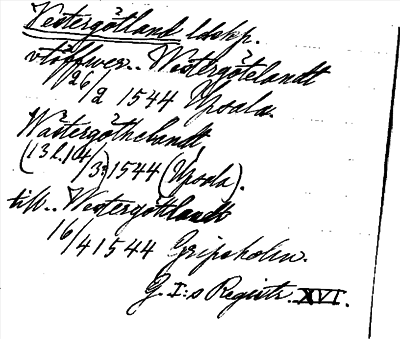 Vestergötland ldskp.
vtöffwer.. Westergötelandt
26/2 1544 Upsala.
Wästergöthelandt
(13 l. 14/3:) 1544 (Upsala).
till.. Westergöttlandt
16/4 1544 Gripsholm.
G. I:s Registr. XVI.